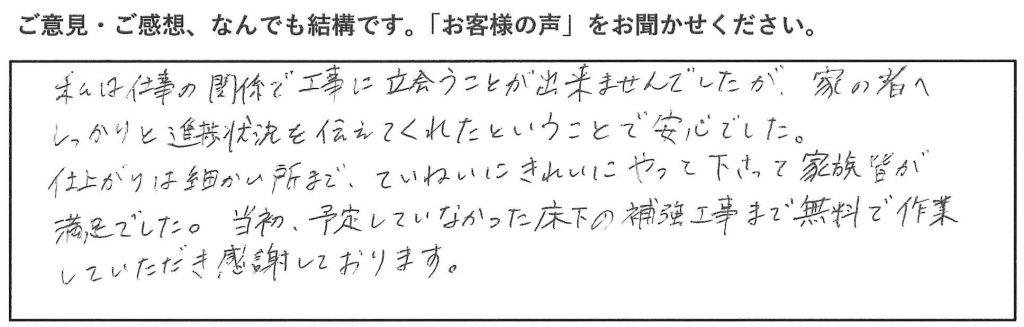 ご意見・ご感想、なんでも結構です。「お客様の声」をお聞かせください。
私は仕事の関係で工事に立会うことが出来ませんでしたが、家の者へ
しっかりと進捗状況を伝えてくれたということで安心でした。
仕上がりは細かい所まで、ていねいにきれいにやって下さって家族皆が
満足でした。当初、予定していなかった床下の補強工事まで無料で作業
していただき感謝しております。